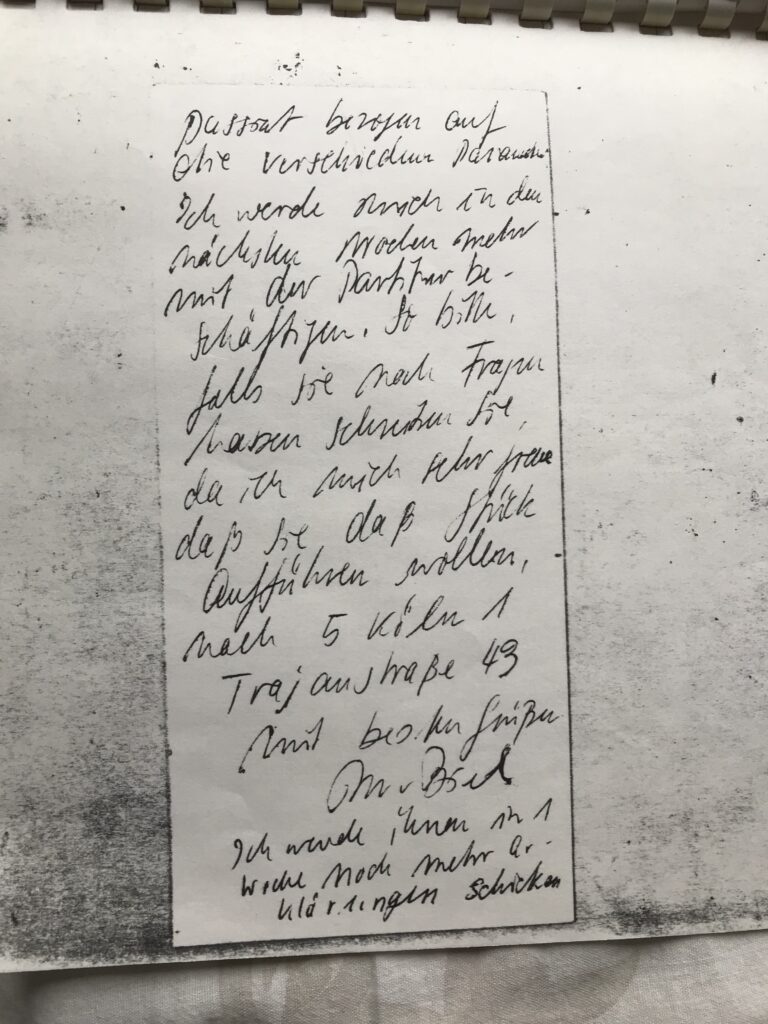 bezogen auf
die verschiedenen
Ich werde mich in den
nächsten Wochen mehr
mit der Partitur be-
schäftigen. So bitte,
falls sie noch Fragen
haben schreiben Sie,
da ich mich sehr freue
daß sie daß Stück
Aufführen wollen,
nach 5 Köln 1
Trajanstraße 43
mit besten Grüßen
Ich werde ihnen in 1
Woche noch mehr Er-
klärungen schicken